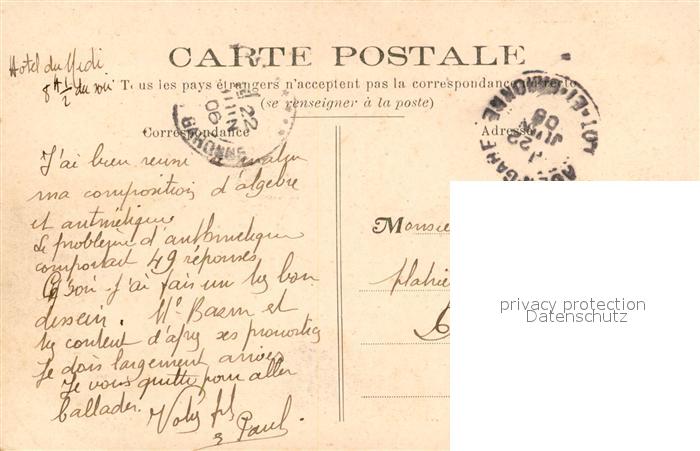 Hotel du Midi
8h 1/2 du soir
CARTE POSTALE
Tous les pays étrangers n'acceptent pas la correspondance
(se renseigner à la poste)
Correspondance
Adresse
22
JUIN
06
22
JUIN
06
LOT-ET-GARONNE
J'ai bien reussi matin
ma composition d'algebre
et aritmétique
Le problème d'arithmetique
comportait 49 réponses
Ce soir j'ai fais un tres bon
dessein. Mr et
tes content d'après ses pronostics
Je dois largement arriver
Je vous quitte pour aller
ballader.
Votre fils
Paul.
Monsieu
privacy protection
Datenschutz